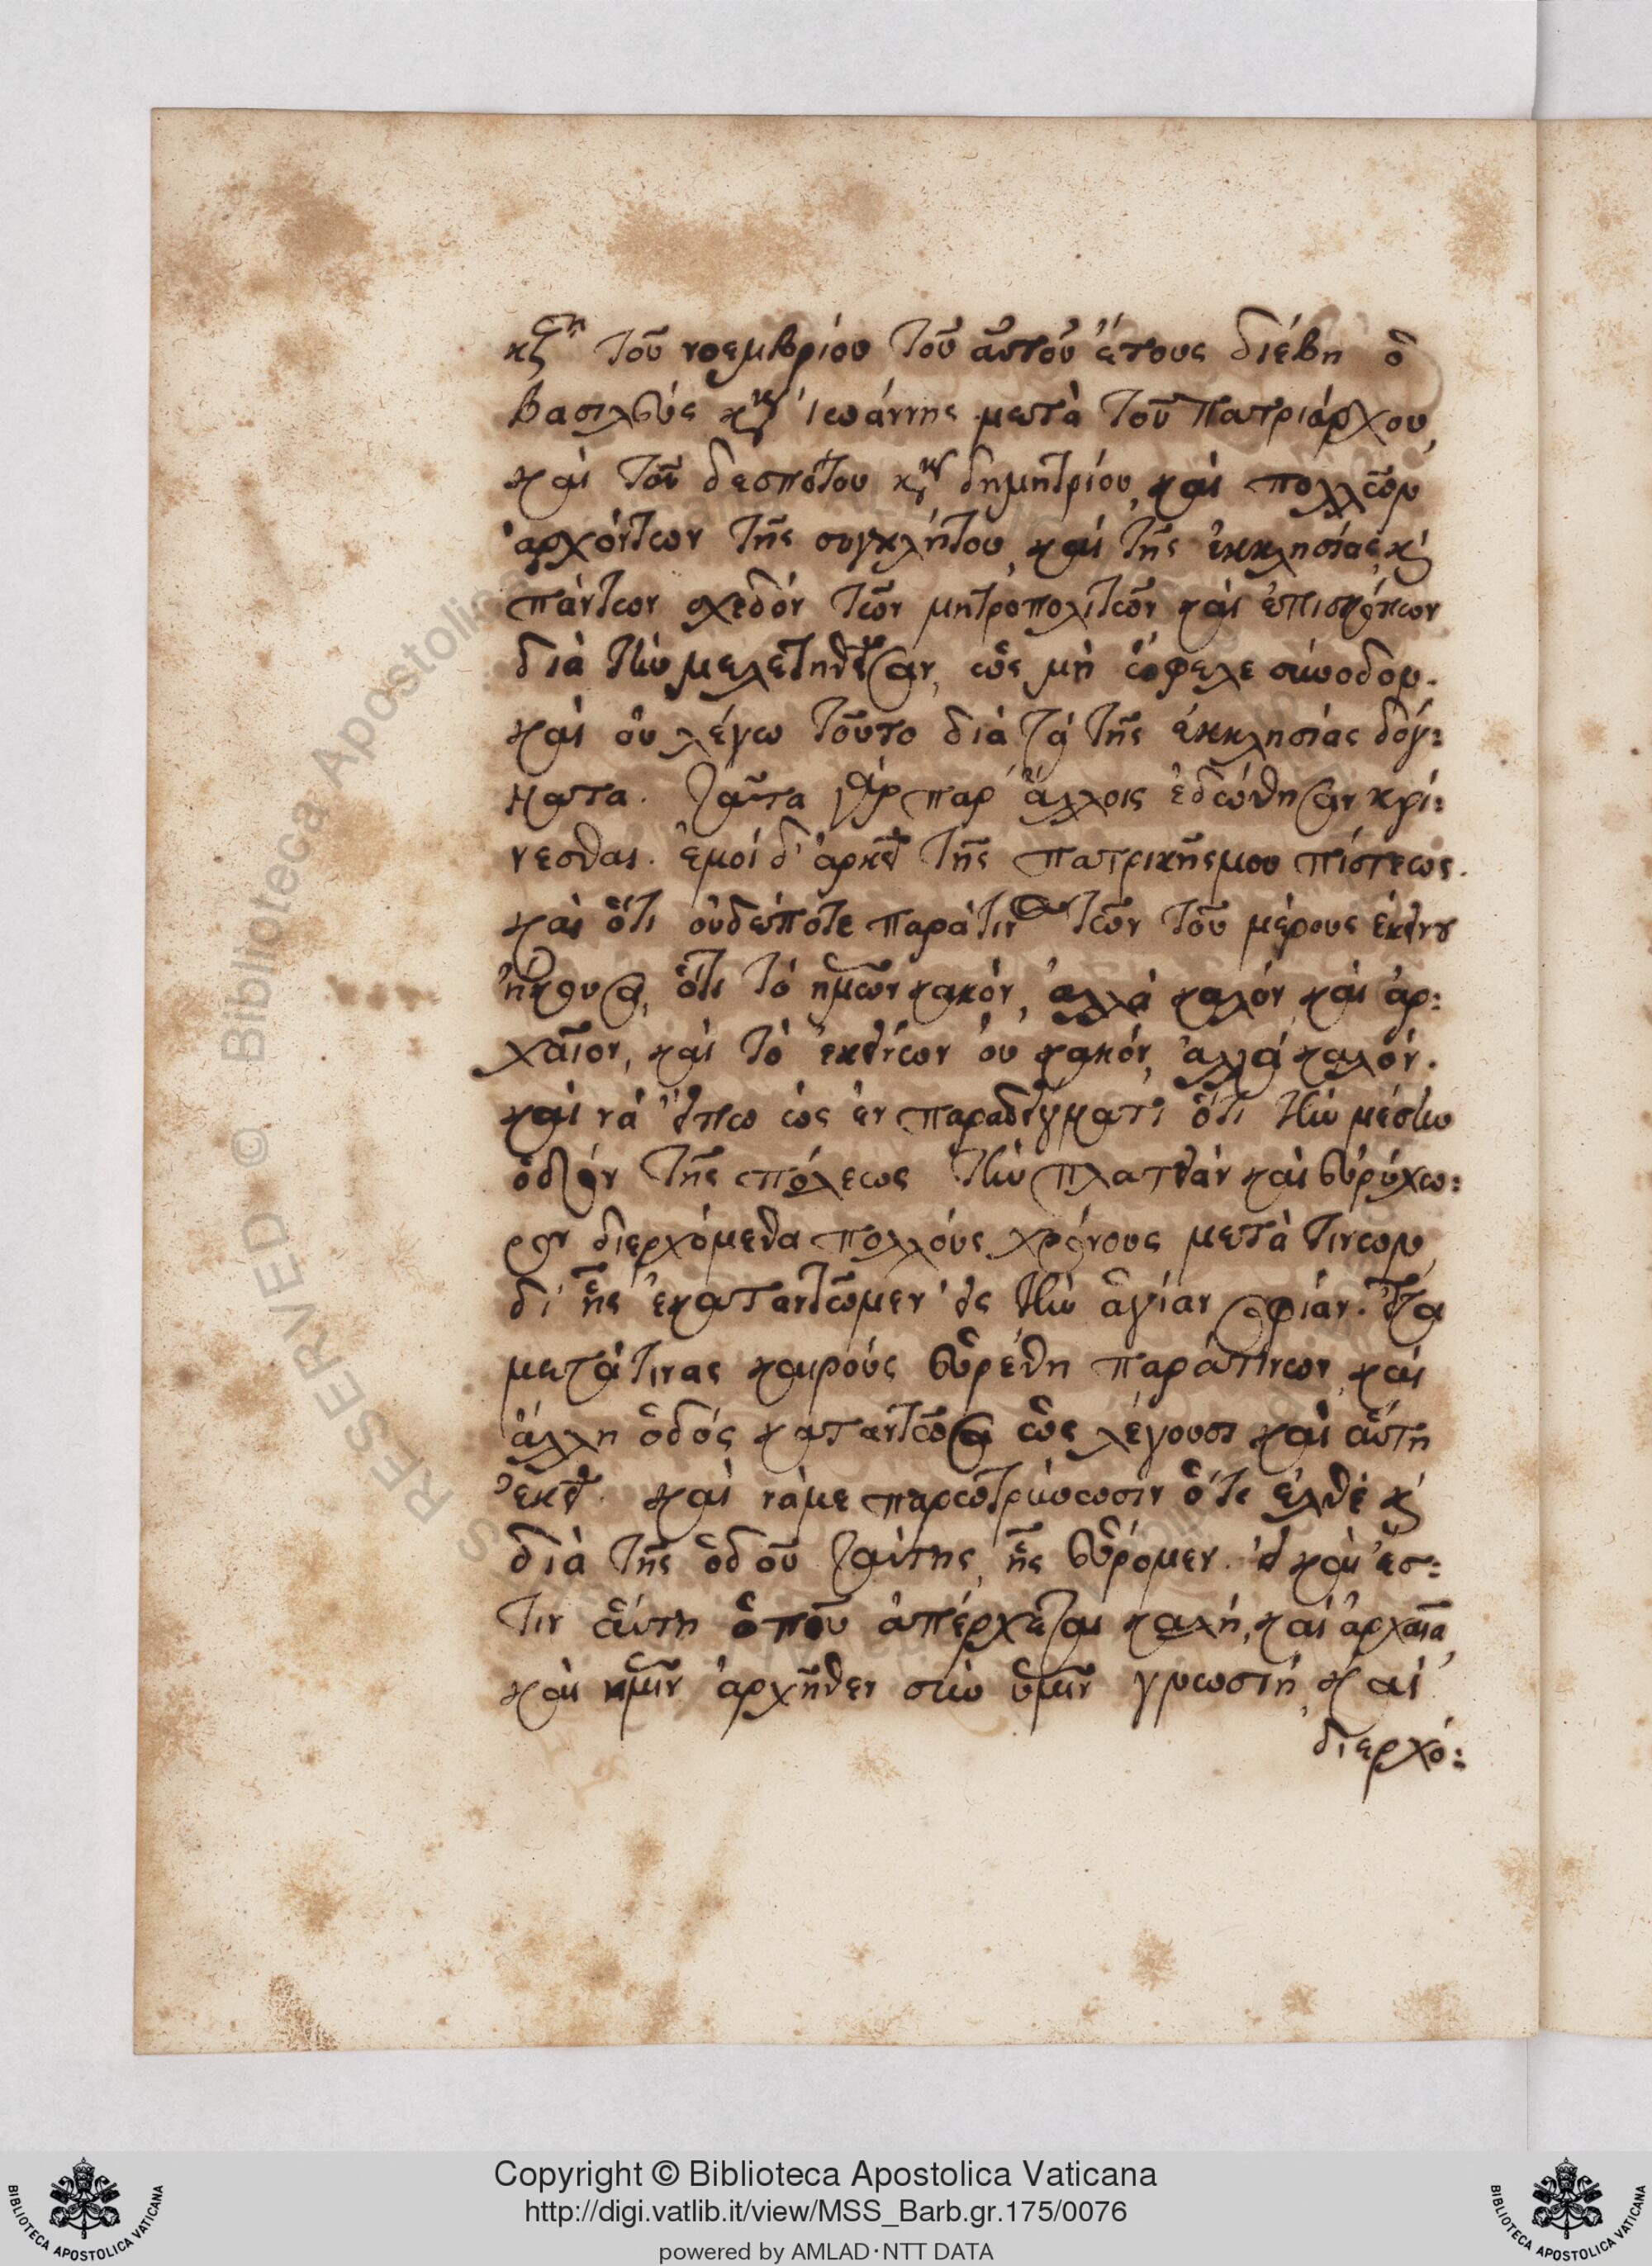 κζῃ τοῦ νοεμβρίου τοῦ αὐτοῦ ἔτους διέβη ὁ
βασιλεὺς κὺρ Ἰωάννης μετὰ τοῦ πατριάρχου,
καὶ τοῦ δεσπότου κὺρ δημητρίου, καὶ πολλῶν
ἀρχόντων τῆς συγκλήτου, καὶ τῆς ἐκκλησίας, κ̀
πάντων σχεδὸν τῶν μητροπολιτῶν καὶ ἐπισκόπων
διὰ τὴν μελετηθεῖσαν, ὡς μὴ ὤφελε σύνοδον.
καὶ οὐ λέγω τοῦτο διὰ τὰ τῆς ἐκκλησίας δόγ:
ματα. ταῦτα γὰρ παρ' ἄλλοις ἐδώθησαν κρί:
νεσθαι. ἐμοὶ δ' ἀρκεῖ τῆς πατρικῆς μου πίστεως.
καὶ ὅτι οὐδέποτε παρά τινος τῶν τοῦ μέρους ἐκείνου
ἤκουσα, ὅτι τὸ ἡμῶν κακὸν, ἀλλὰ καλὸν, καὶ ἀρ:
χαῖον, καὶ τὸ ἐκείνων οὐ κακὸν, ἀλλὰ καλόν.
καὶ νὰ εἴπω ὡς ἐν παραδείγματι ὅτι τὴν μέσην
ὁδὸν τῆς πόλεως τὴν πλατεῖαν καὶ εὐρύχω:
ρον διερχόμεθα πολλοὺς χρόνους μετὰ τινων,
δι' ἧς ἐκαταντῶμεν εἰς τὴν ἁγίαν σοφίαν. εἶτα
μετά τινας καιροὺς εὑρέθη παρά τινων, καὶ
ἄλλη ὁδὸς καταντῶσα ὡς λέγουσι καὶ αὕτη
ἐκεῖ. καὶ νά με παρωτρύνωσιν ὅτε ἐλθὲ κ̀
διὰ τῆς ὁδοῦ ταύτης, ἧς εὕρομεν. εἰ καὶ ἔσ:
τιν αὕτη ὁποῦ ἀπέρχεται καλὴ, καὶ ἀρχαῖα,
καὶ ἡμῖν ἀρχῆθεν σὺν ὑμῖν γνωστὴ, καὶ
διερχό:
Copyright © Biblioteca Apostolica Vaticana
http://digi.vatlib.it/view/MSS_Barb.gr.175/0076
powered by AMLAD·NTT DATA
BIBLIOTECA APOSTOLICA VATICANA
BIBLIOTECA APOSTOLICA VATICANA